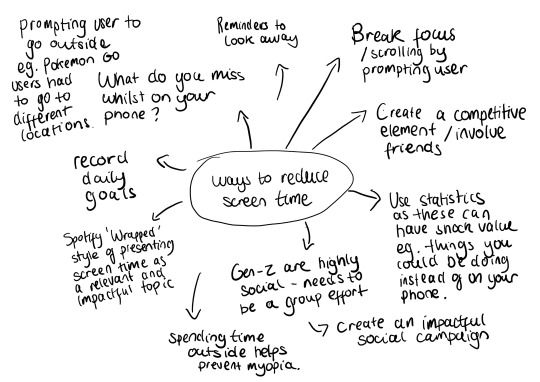 Prompting user to
go outside
eg. Pokemon GO
users had
to go to
different
locations.
What do you miss
whilst on your
phone?
Reminders to
look away
Break focus
/scrolling by
prompting user
Create a competitive
element / involve
friends
record
daily
goals
ways to reduce
screen time
Use statistics
as these can
have shock value
eg. things you
could be doing
instead of on your
phone.
Spotify 'Wrapped'
style of presenting
screen time as
a relevant and
impactful topic
Gen-Z are highly
social - needs to
be a group effort
Create an impactful
social campaign
spending time
outside helps
prevent myopia.